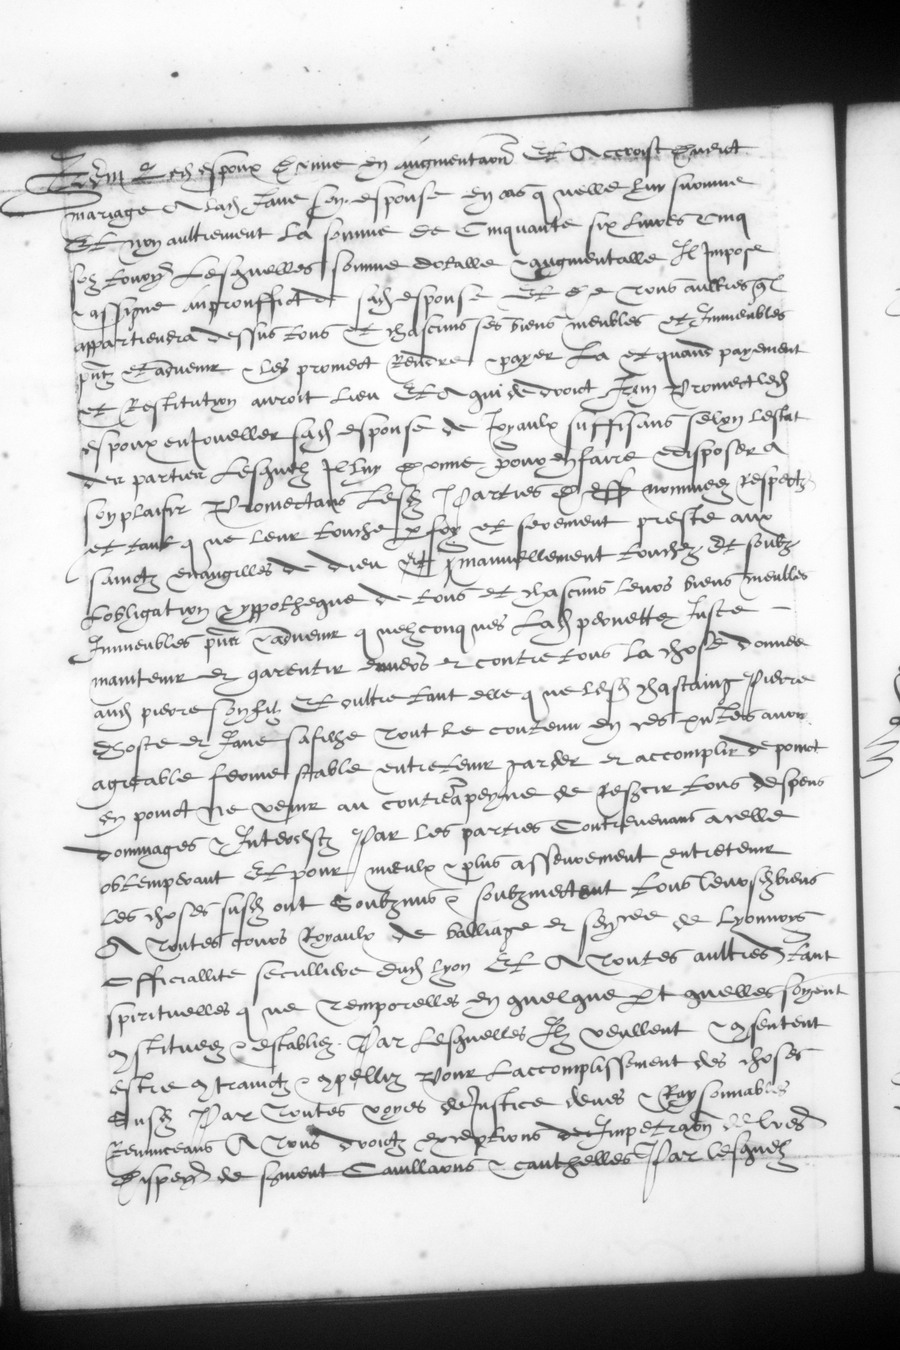 Item led espoux donne en augmentaon Et Accroist dudit
mariage A lad Jane son espouse en cas q uelle luy survive
Et non aultrement La somme de Cinquante six livres cinq
solz tourn Lesquelles somme dotalle & augmentalle Il Impose
& assigne au prouffict de sad espouse Et de tous aultres ql
appartiendra dessus tous et chascuns ses biens meubles et Immeubles
pntz et advenir & les promect Rendre & payer La et quand payement
et Restitution auroit lieu Et A qui de droict Item Promect led
espoux enjoueller sad espouse de Joyaulx suffisans selon lestat
des parties Lesquelz Il luy donne pour en faire & disposer A
son plaisir Promectans Lesd Parties nommees Respect
et tant q ue leur touche p foy et serement preste aux
sainctz evangilles de dieu p manuellement touchez Et soubz
Lobligation & yppotheque de tous et chascuns leurs biens meubles
Immeubles pntz & advenir q uelzconq ues Lad pernette Juste
maintenir et garentir envers et contre tous la chose donnee
aud pierre son filz Et oultre tant elle q ue lesd chastaing Pierre
dhoste et Jane sa fille tout le contenu en ces pntes avoir
agreable ferme stable entretenir garder et accomplir de poinct
en poinct Ne venir au contre a peyne de tous despens
dommages & Interestz Par les parties Contrevenans a celle
obtemperant Et pour mieulx & plus asseurement entretenir
les choses susd ont Soubzmis & soubzmectent tous leursd biens
A toutes cours Royaulx de bailliage et sencee de Lyonnois
Officiallite seculliere dud Lyon Et A toutes aultres tant
spirituelles q ue temporelles en quelque pt quelles soyent
9stituees & establiez Par Lesquelles Ilz veullent & 9sentent
estre 9trainctz & 9pelliz Pour Laccomplissement des choses
Susd Par toutes voyes de Justice deues & Raysonnables
Renunceans A tous droictz exceptions de Impetraon de lres
dispen de serment Cavillaons & cauthelles Par lesquelz